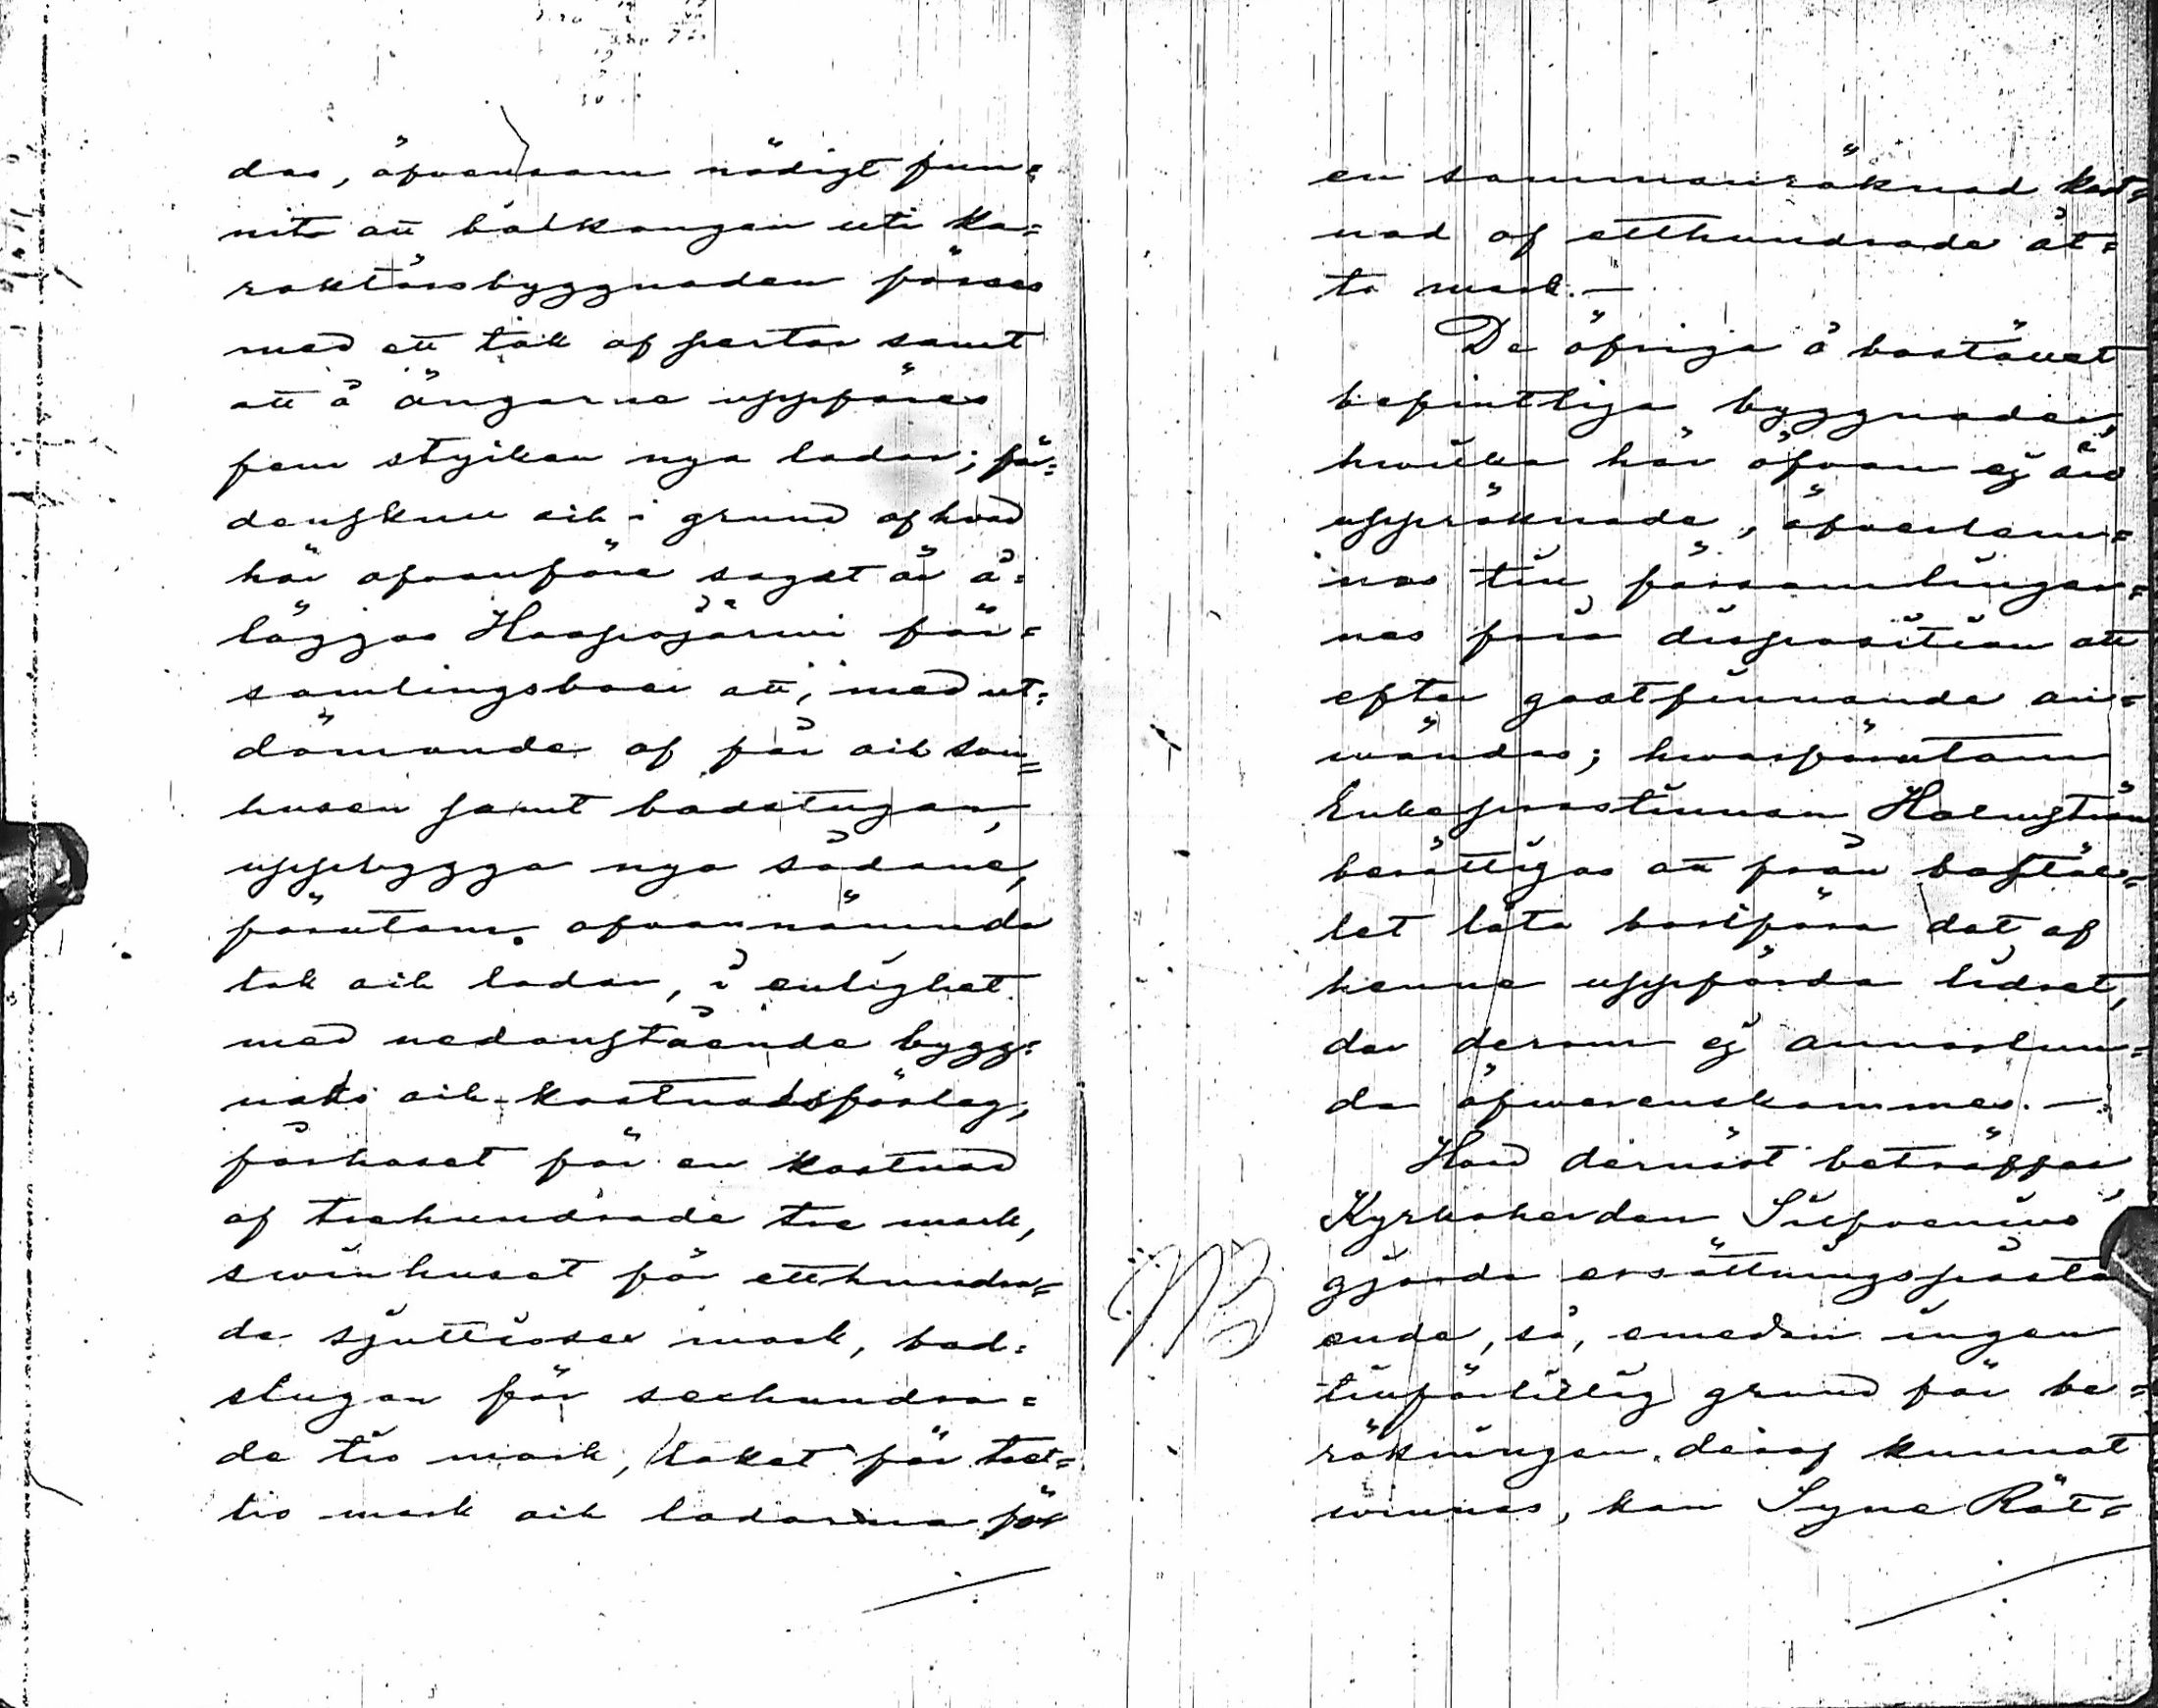 das, äfvensom nödigt fun=
nits att balkongen uti ka=
raktärsbyggnaden förses
med ett tak af pertor samt
att å ängarne uppföres
fem stycken nya lador; för=
denskull och i grund af hvad
här ofvanföre sagdt är å=
lägges Haapajärwi för=
samlingsboer att, med ut=
dömande af får och swin=
husen samt badstugan,
uppbygga nya sådane,
förutom ofvannämnda
tak och lador, i enlighet
med nedanstående bygg=
nads och kostnadsförslag;
fårhuset för en kostnad
af trehundrade tre mark,
swinhuset för etthundra=
de sjuttiosex mark, bad=
stugan för sexhundra=
de tio mark, taket för tret=
tio mark och ladorna för
en sammanräknad kost=
nad af etthundrade åt=
ta mark.—
De öfriga å bostället
befintliga byggnader,
hwilka här ofvan ej äro
uppräknade, öfverlem=
nas till församlingar=
nas fria disposition att
efter godtfinnande an=
wändas; hwarförutom
Enkeprostinnan Holmström
berättigas att från bostäl=
let låta bortföra det af
henne uppförda lidret,
der derom ej annorlun=
da öfwerenskommes.—
Hvad dernäst beträffar
Kyrkoherden
gjorda ersättningspåstå
ende, så, emedan ingen
tillförlitlig grund för be=
räkningen deraf kunnat
winnas, kan Syne Rät=
NB